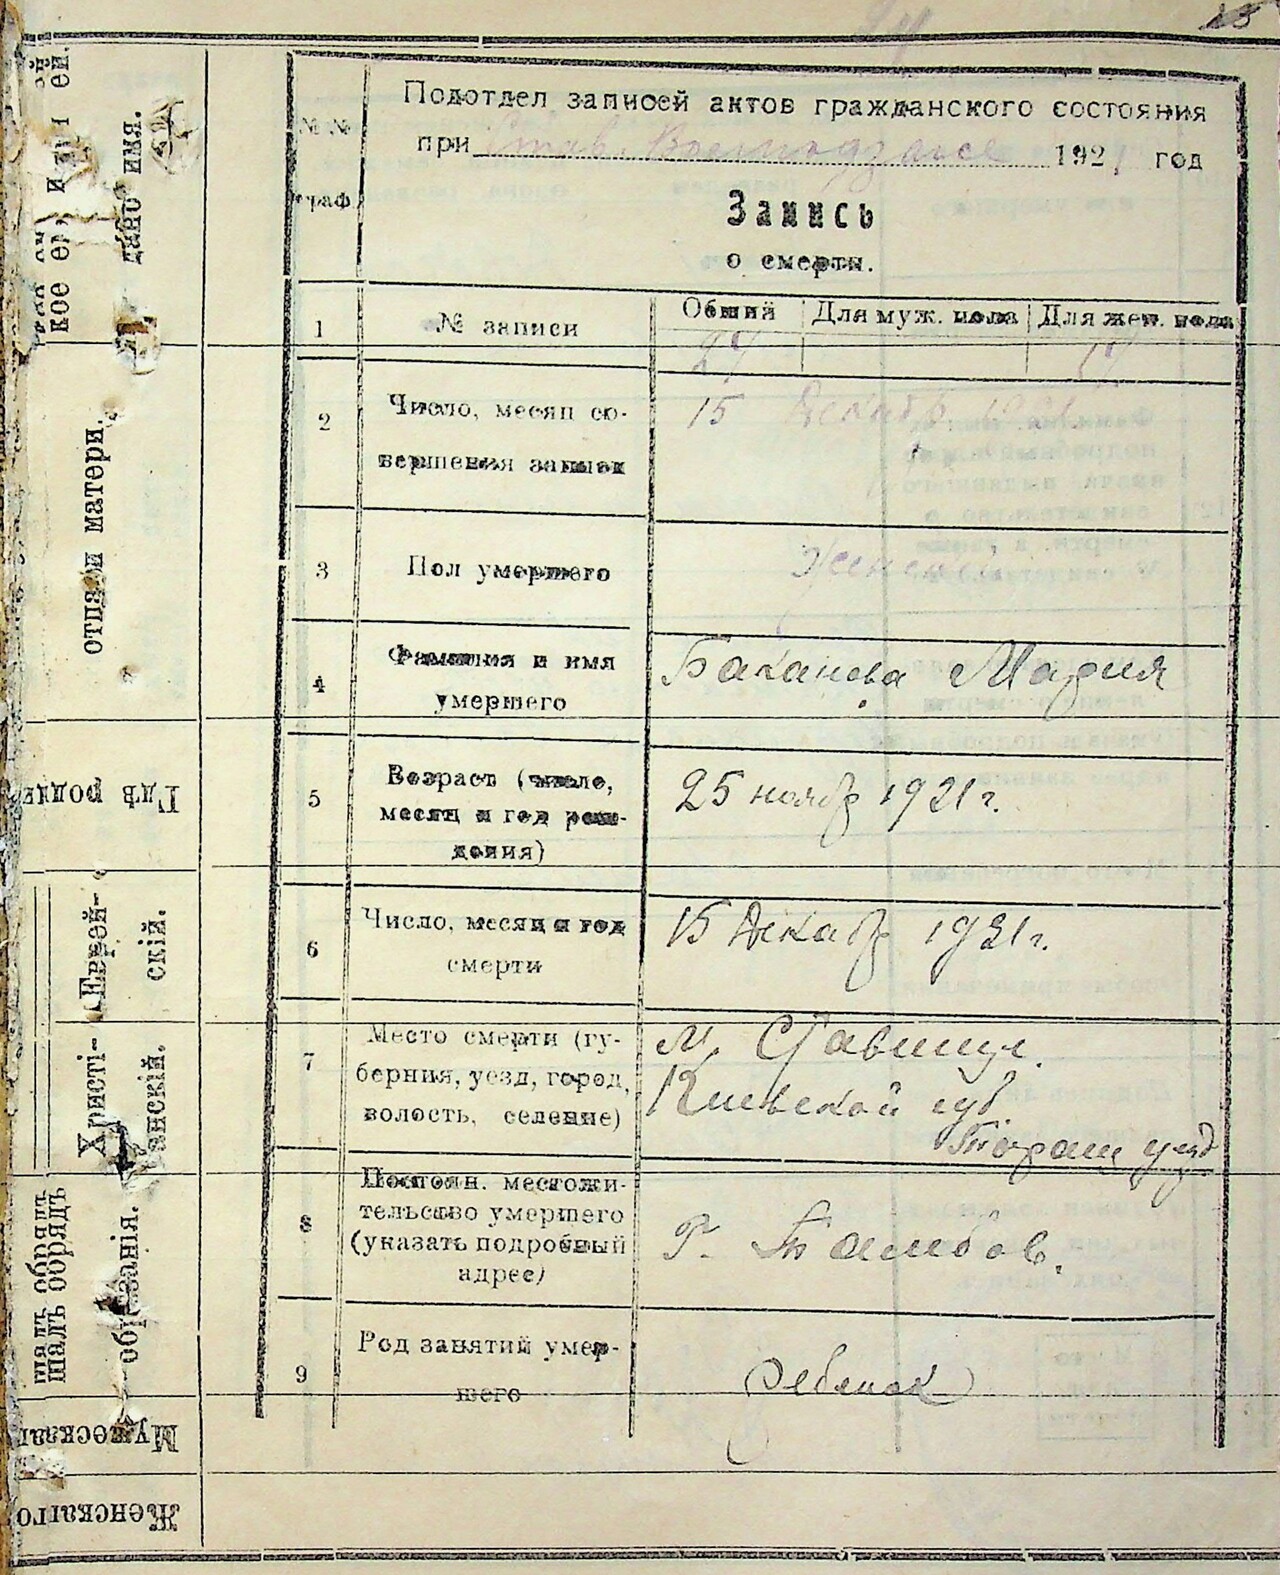 Подотдел записей актов гражданского состояния
при Став. 1921 год
№№ граф
Запись
о смерти.
1 № записи Общий Для муж. пола Для жен. пола
27 17
2 Число, месяц со-
вершения записи
15 Декабр 1921
3 Пол умершего Женский
4 Фамилия и имя
умершего
Баканова Мария
5 Возраст (число,
месяц и год рож-
дения)
25 ноябр 1921 г.
6 Число, месяц и год
смерти
15 Декабр 1921 г.
7 Место смерти (гу-
берния, уезд, город,
волость, селение)
М. Ставищи.
Киевской губ.
Таращ уезд
8 Постоян. местожи-
тельство умершего
(указать подробный
адрес)
Г. Тамбов.
9 Род занятий умер-
шего
Ребенок
дано имя.
отца и матери.
Гдѣ родил
Еврей-
скій.
Христі-
анскій.
шалъ обрядъ
обрѣзанія.
Мужескаг
Женскаго